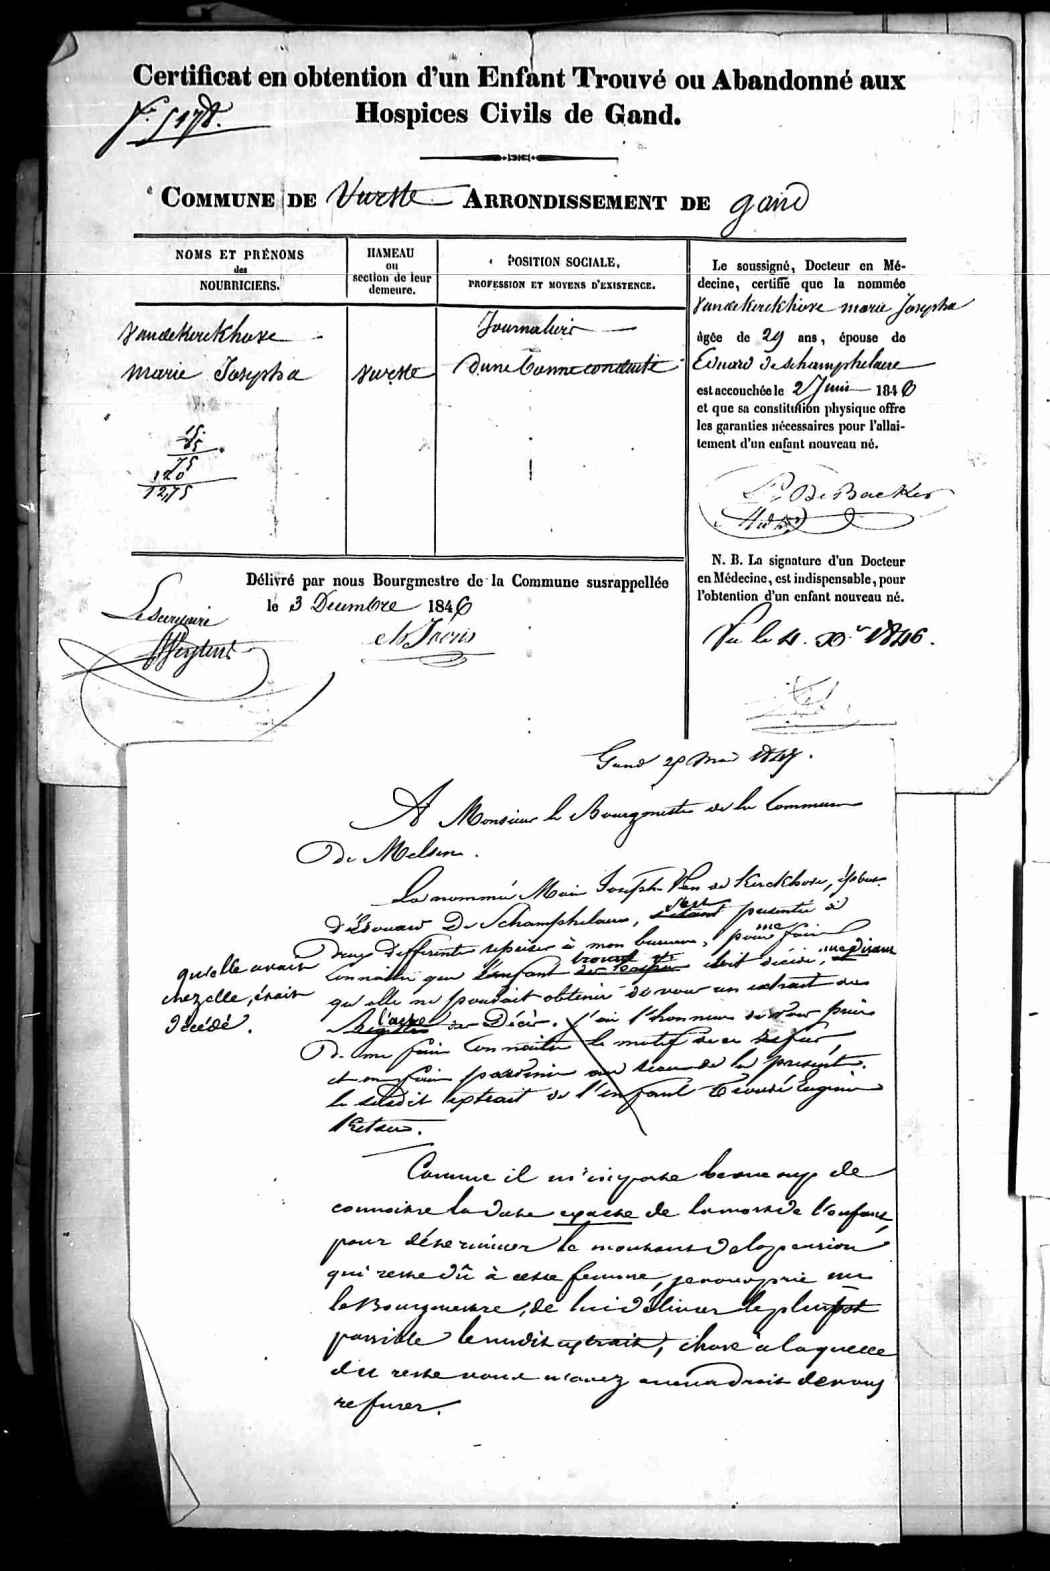 Certificat en obtention d'un Enfant Trouvé ou Abandonné aux
Hospices Civils de Gand.
COMMUNE DE Vurste ARRONDISSEMENT DE gand
NOMS ET PRÉNOMS
des
NOURRICIERS.
HAMEAU
ou
section de leur
demeure.
POSITION SOCIALE,
PROFESSION ET MOYENS D'EXISTENCE.
Vandekerckhove
marie Josepha
vurste
Journalier
D'une bonne conduite
15
85
75
120
12,75
Le soussigné, Docteur en Mé-
decine, certifie que la nommée
Vandekerckhove marie Josepha
âgée de 29 ans, épouse de
Eduard De schamphelaere
est accouchée le 2 Juin 1846
et que sa constitution physique offre
les garanties nécessaires pour l'allai-
tement d'un enfant nouveau né.
De Backer
N. B. La signature d'un Docteur
en Médecine, est indispensable, pour
l'obtention d'un enfant nouveau né.
Vu le 4. Xr 1846.
Délivré par nous Bourgmestre de la Commune susrappellée
le 3 Decembre 1846
Le secretaire
Gand 29 Mai 1847.
A Monsieur le Bourgmestre de la Commune
de Melsen.
La nommée Marie Joseph Van de Kerckhove, épouse
d'Edouard De Schamphelaere, s'est présentée à
deux differentes reprises à mon bureau, pour me faire
connaitre que l'enfant trouvé
qu'elle avait
chez elle, était
décédé.
était décédé, me disant
qu'elle ne pouvait obtenir de vous un extrait des
l'acte de Décès. j'ai l'honneur de vous prier
de me faire connaitre le motif de ce refus,
et me faire parvenir au dos de la présente
le susdit extrait de l'enfant trouvé Eugenie
Comme il m'importe beaucoup de
connoitre la date exacte de la mort de l'enfant,
pour déterminer le montant de la pension
qui reste dû à cette femme, je vous prie M.
le Bourgmestre, de lui délivrer le plutôt
possible le susdit extrait, chose à laquelle
du reste vous n'avez aucun droit de vous
refuser.